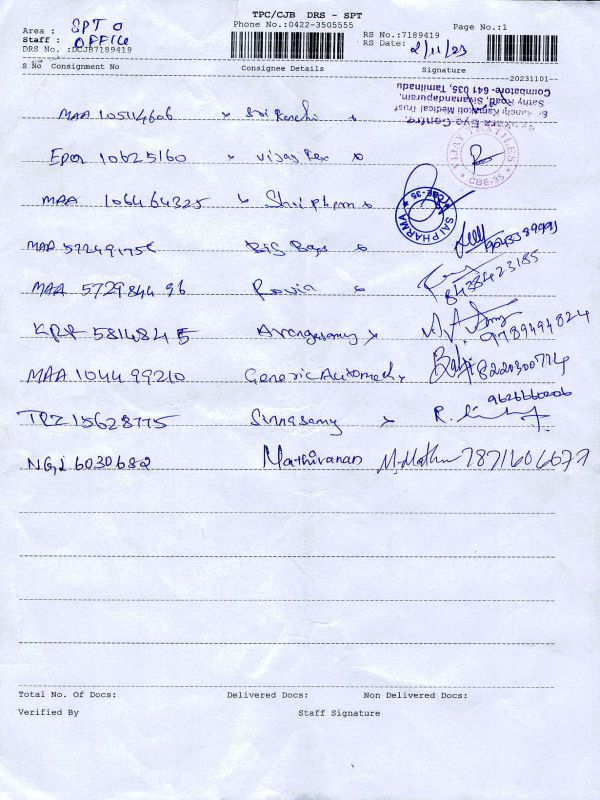 TPC/CJB DRS - SPT
Phone No.:0422-3505555
Page No.:1
Area : SPT O
Staff : OFFICE
DRS No. :DCJB7189419
RS No.:7189419
RS Date: 2/11/23
S No Consignment No Consignee Details Signature
20231101--
Sankara Eye Centre,
Sri Kanchi Kamakoti Medical Trust
Sathy Road, Sivanandapuram,
Coimbatore- 641 035, Tamilnadu
MAA 105114606 Sri Kanchi
Epor 10625160 Vijay Tex
VIJAY TEXTILES
CBE-35
MAA 106464325 Shri pharm
SAI PHARMA
CBE-35
MAA Big Bags
MAA 572984496 Rovia 8438423185
KRR 5814845 9789494824
MAA 104499210 Generic Automech Balaji 8220300774
TRZ 15628775 Sinnasamy R. 9626660206
NGI 6030682 Mathivanan M.Mathi 7871606077
Total No. Of Docs: Delivered Docs: Non Delivered Docs:
Verified By Staff Signature